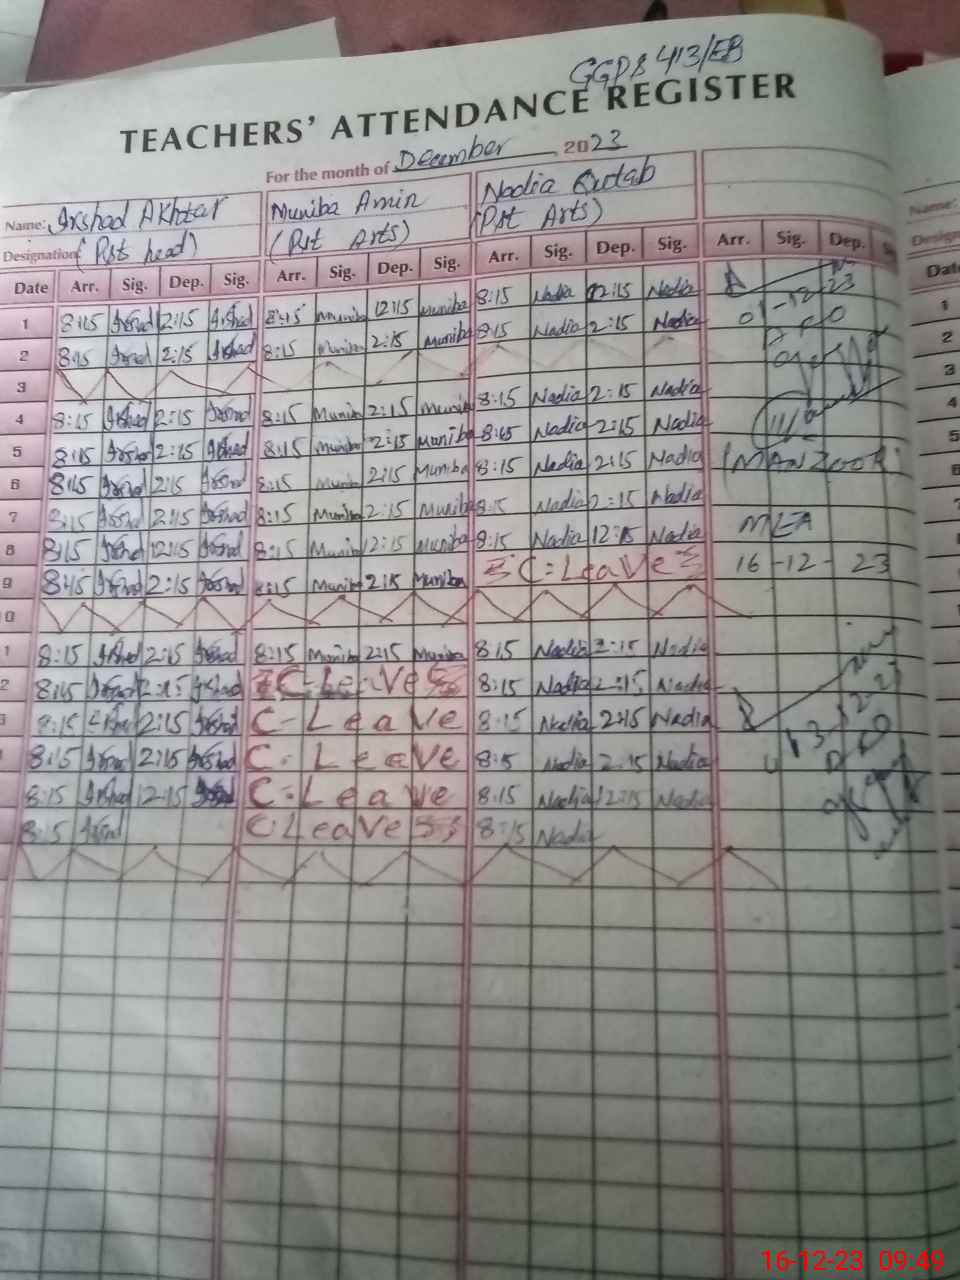 GGPS 413/EB
TEACHERS' ATTENDANCE REGISTER
For the month of December 2023
Name: Irshad Akhtar Muniba Amin Nadia Qutab
Designation (Pst head) (Pst Arts) (Pst Arts)
Date Arr. Sig. Dep. Sig. Arr. Sig. Dep. Sig. Arr. Sig. Dep. Sig. Arr. Sig. Dep.
1 8:15 Irshad 12:15 Irshad 8:15 Muniba 12:15 Muniba 8:15 Nadia 12:15 Nadia
01-12-23
2 8:15 Irshad 2:15 Irshad 8:15 Muniba 2:15 Muniba 8:15 Nadia 2:15 Nadia
3
4 8:15 Irshad 2:15 Irshad 8:15 Muniba 2:15 Muniba 8:15 Nadia 2:15 Nadia
5 8:15 Irshad 2:15 Irshad 8:15 Muniba 2:15 Muniba 8:15 Nadia 2:15 Nadia
6 8:15 Irshad 2:15 Irshad 8:15 Muniba 2:15 Muniba 8:15 Nadia 2:15 Nadia (MANZOOR)
7 8:15 Irshad 2:15 Irshad 8:15 Muniba 2:15 Muniba 8:15 Nadia 2:15 Nadia
8 8:15 Irshad 12:15 Irshad 8:15 Muniba 12:15 Muniba 8:15 Nadia 12:15 Nadia MEA
9 8:15 Irshad 2:15 Irshad 8:15 Muniba 2:15 Muniba C-Leave 16-12-23
0
1 8:15 Irshad 2:15 Irshad 8:15 Muniba 2:15 Muniba 8:15 Nadia 2:15 Nadia
2 8:15 Irshad 2:15 Irshad C-Leave 8:15 Nadia 2:15 Nadia
8:15 Irshad 2:15 Irshad C-Leave 8:15 Nadia 2:15 Nadia 13-12-23
8:15 Irshad 2:15 Irshad C-Leave 8:15 Nadia 2:15 Nadia
8:15 Irshad 12:15 Irshad C-Leave 8:15 Nadia 12:15 Nadia
8:15 Irshad C-Leave 8:15 Nadia
Name:
Date
1
2
3
4
5
6
16-12-23 09:49